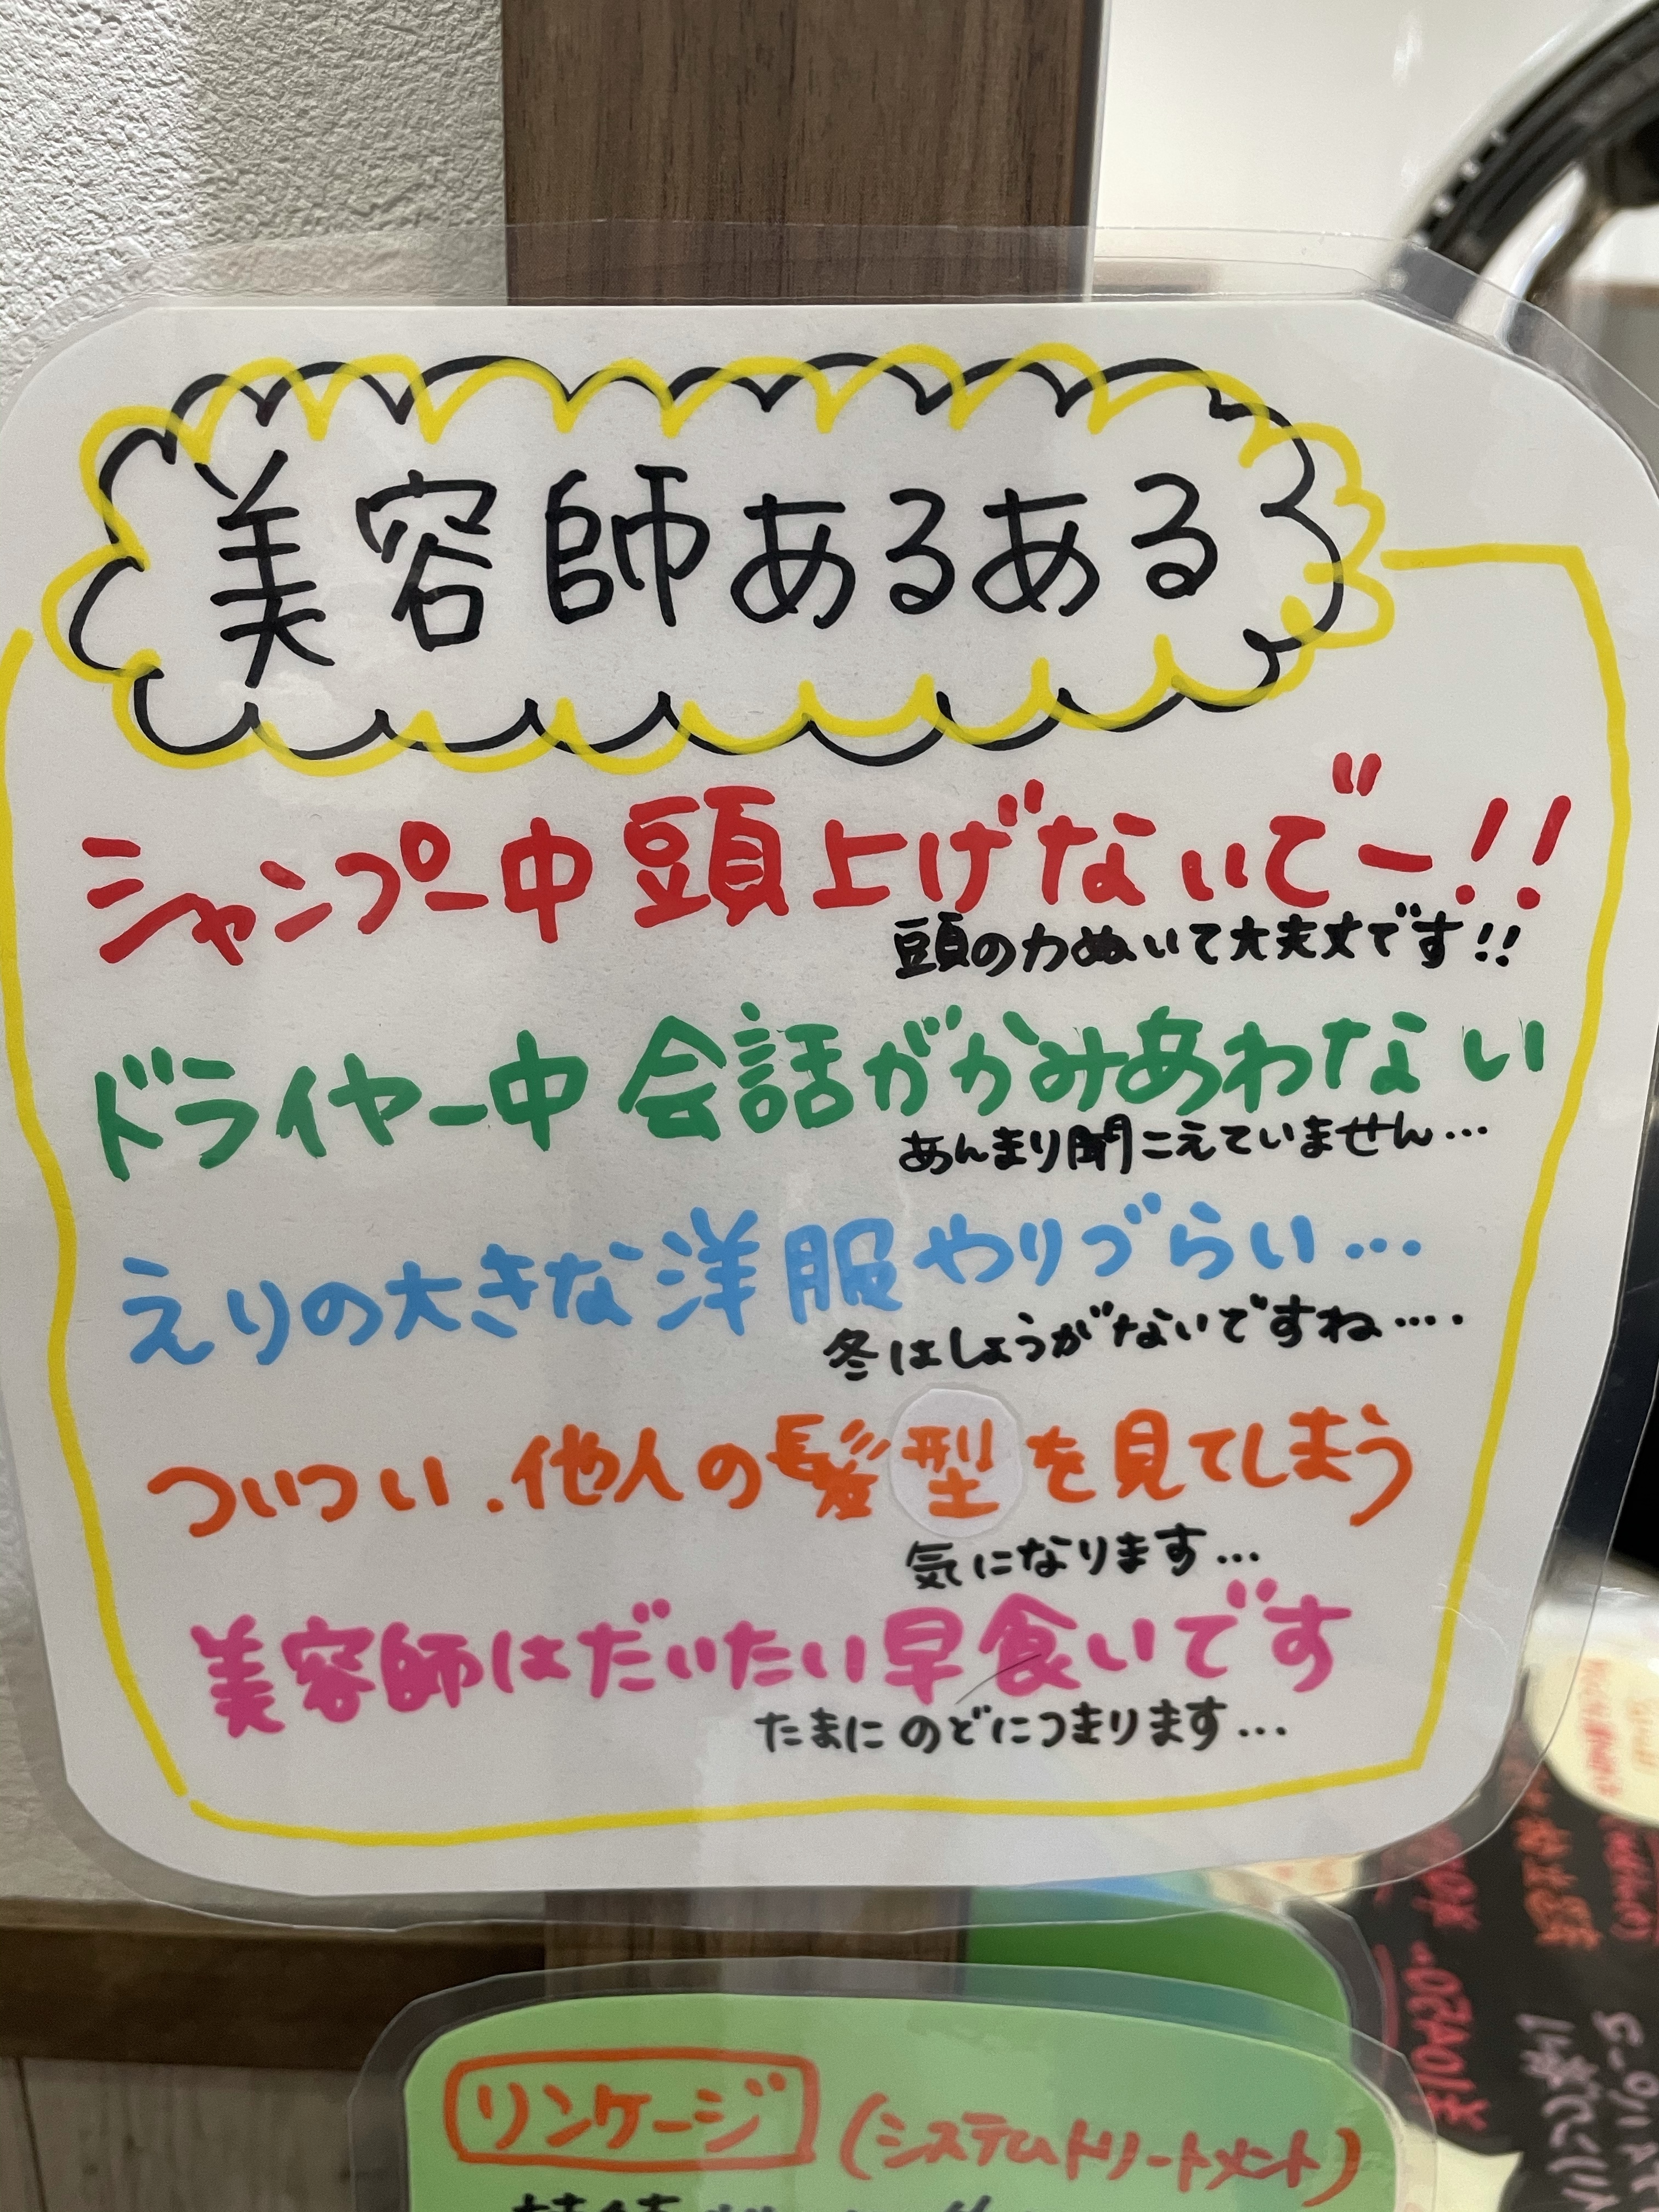 美容師あるある
シャンプー中頭上げないでー!!
頭の力ぬいて大丈夫です!!
ドライヤー中会話がかみあわない
あんまり聞こえていません…
えりの大きな洋服やりづらい…
冬はしょうがないですね….
ついつい、他人の髪型を見てしまう
気になります…
美容師はだいたい早食いです
たまにのどにつまります…
リンケージ (システムトリートメント)